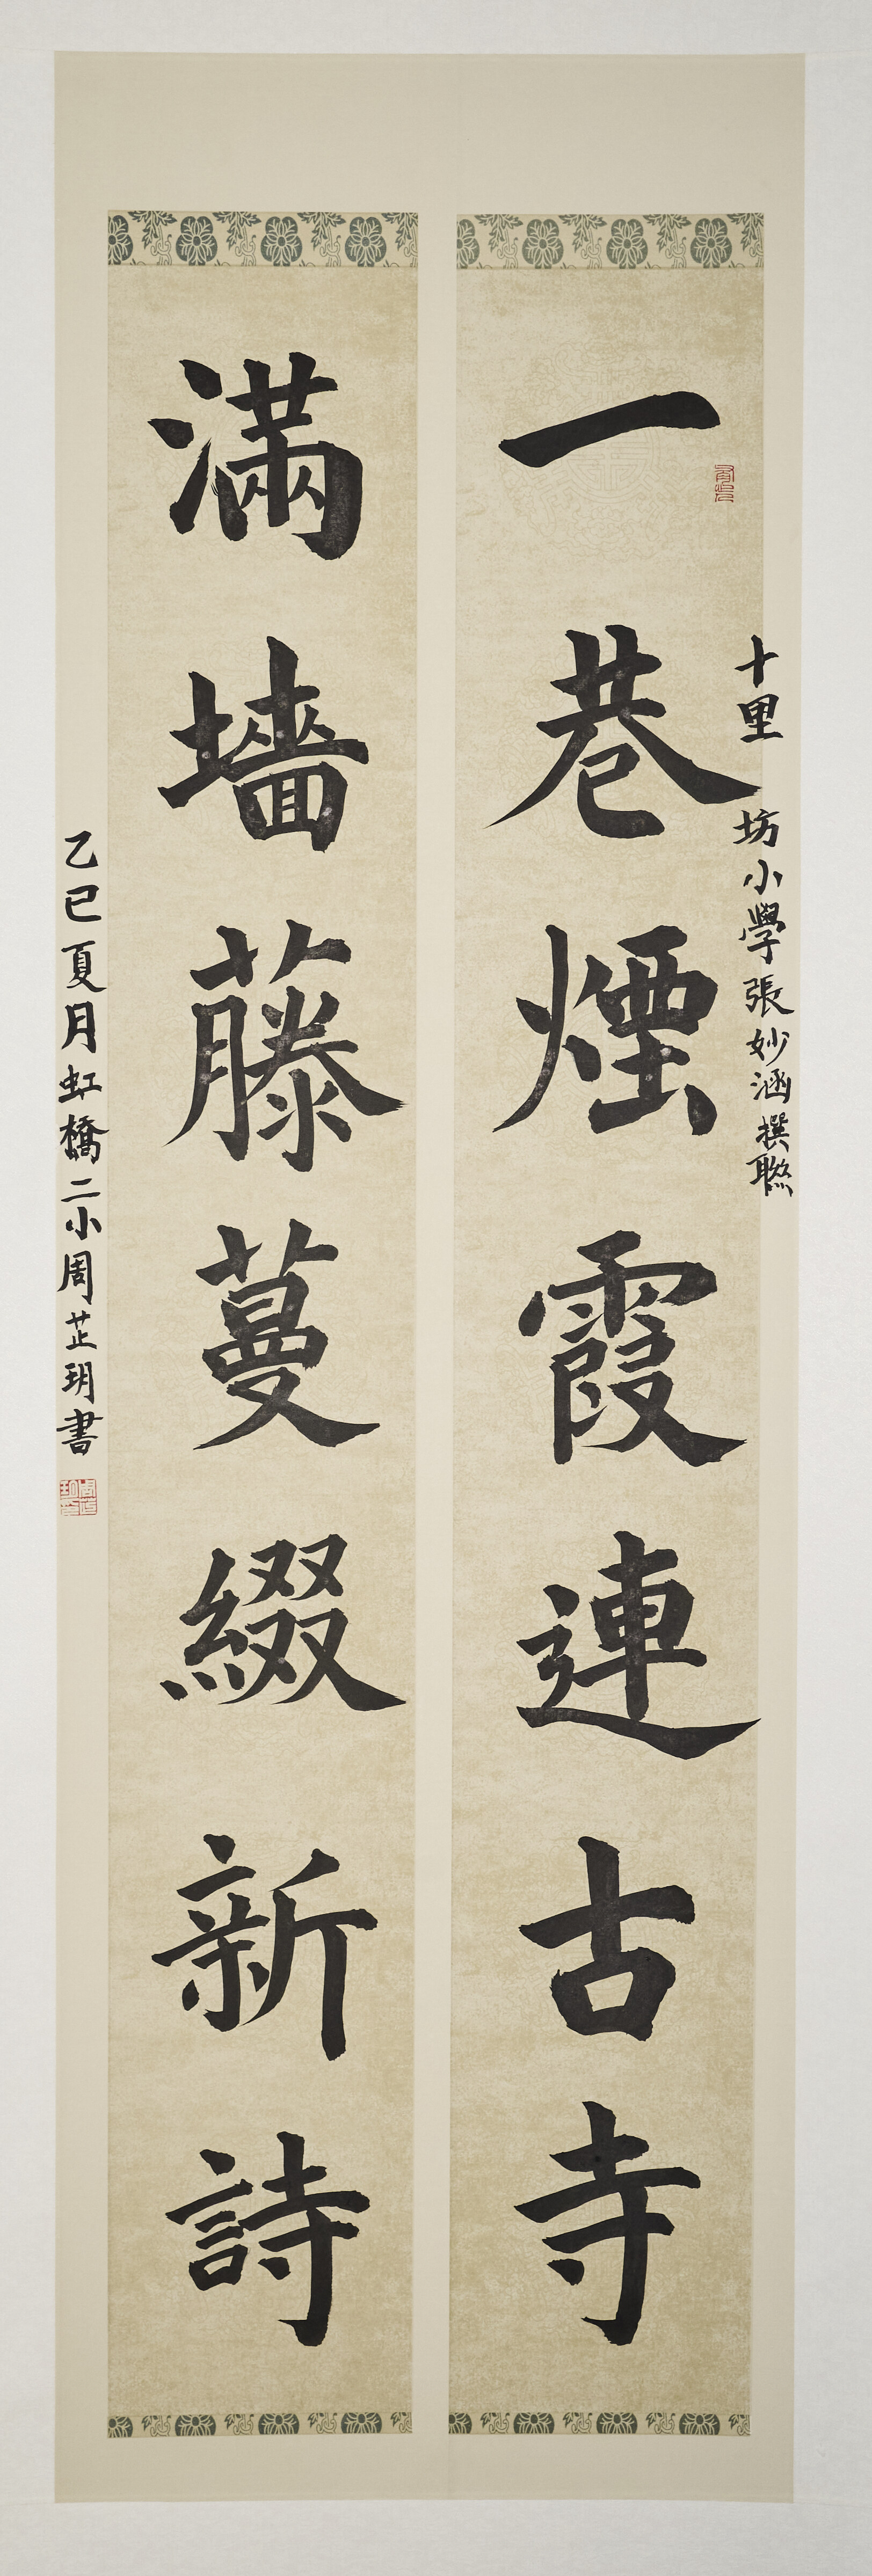 十里坊小學張妙涵撰聯
一巷煙霞連古寺
滿墻藤蔓綴新詩
乙巳夏月虹橋二小周芷玥書